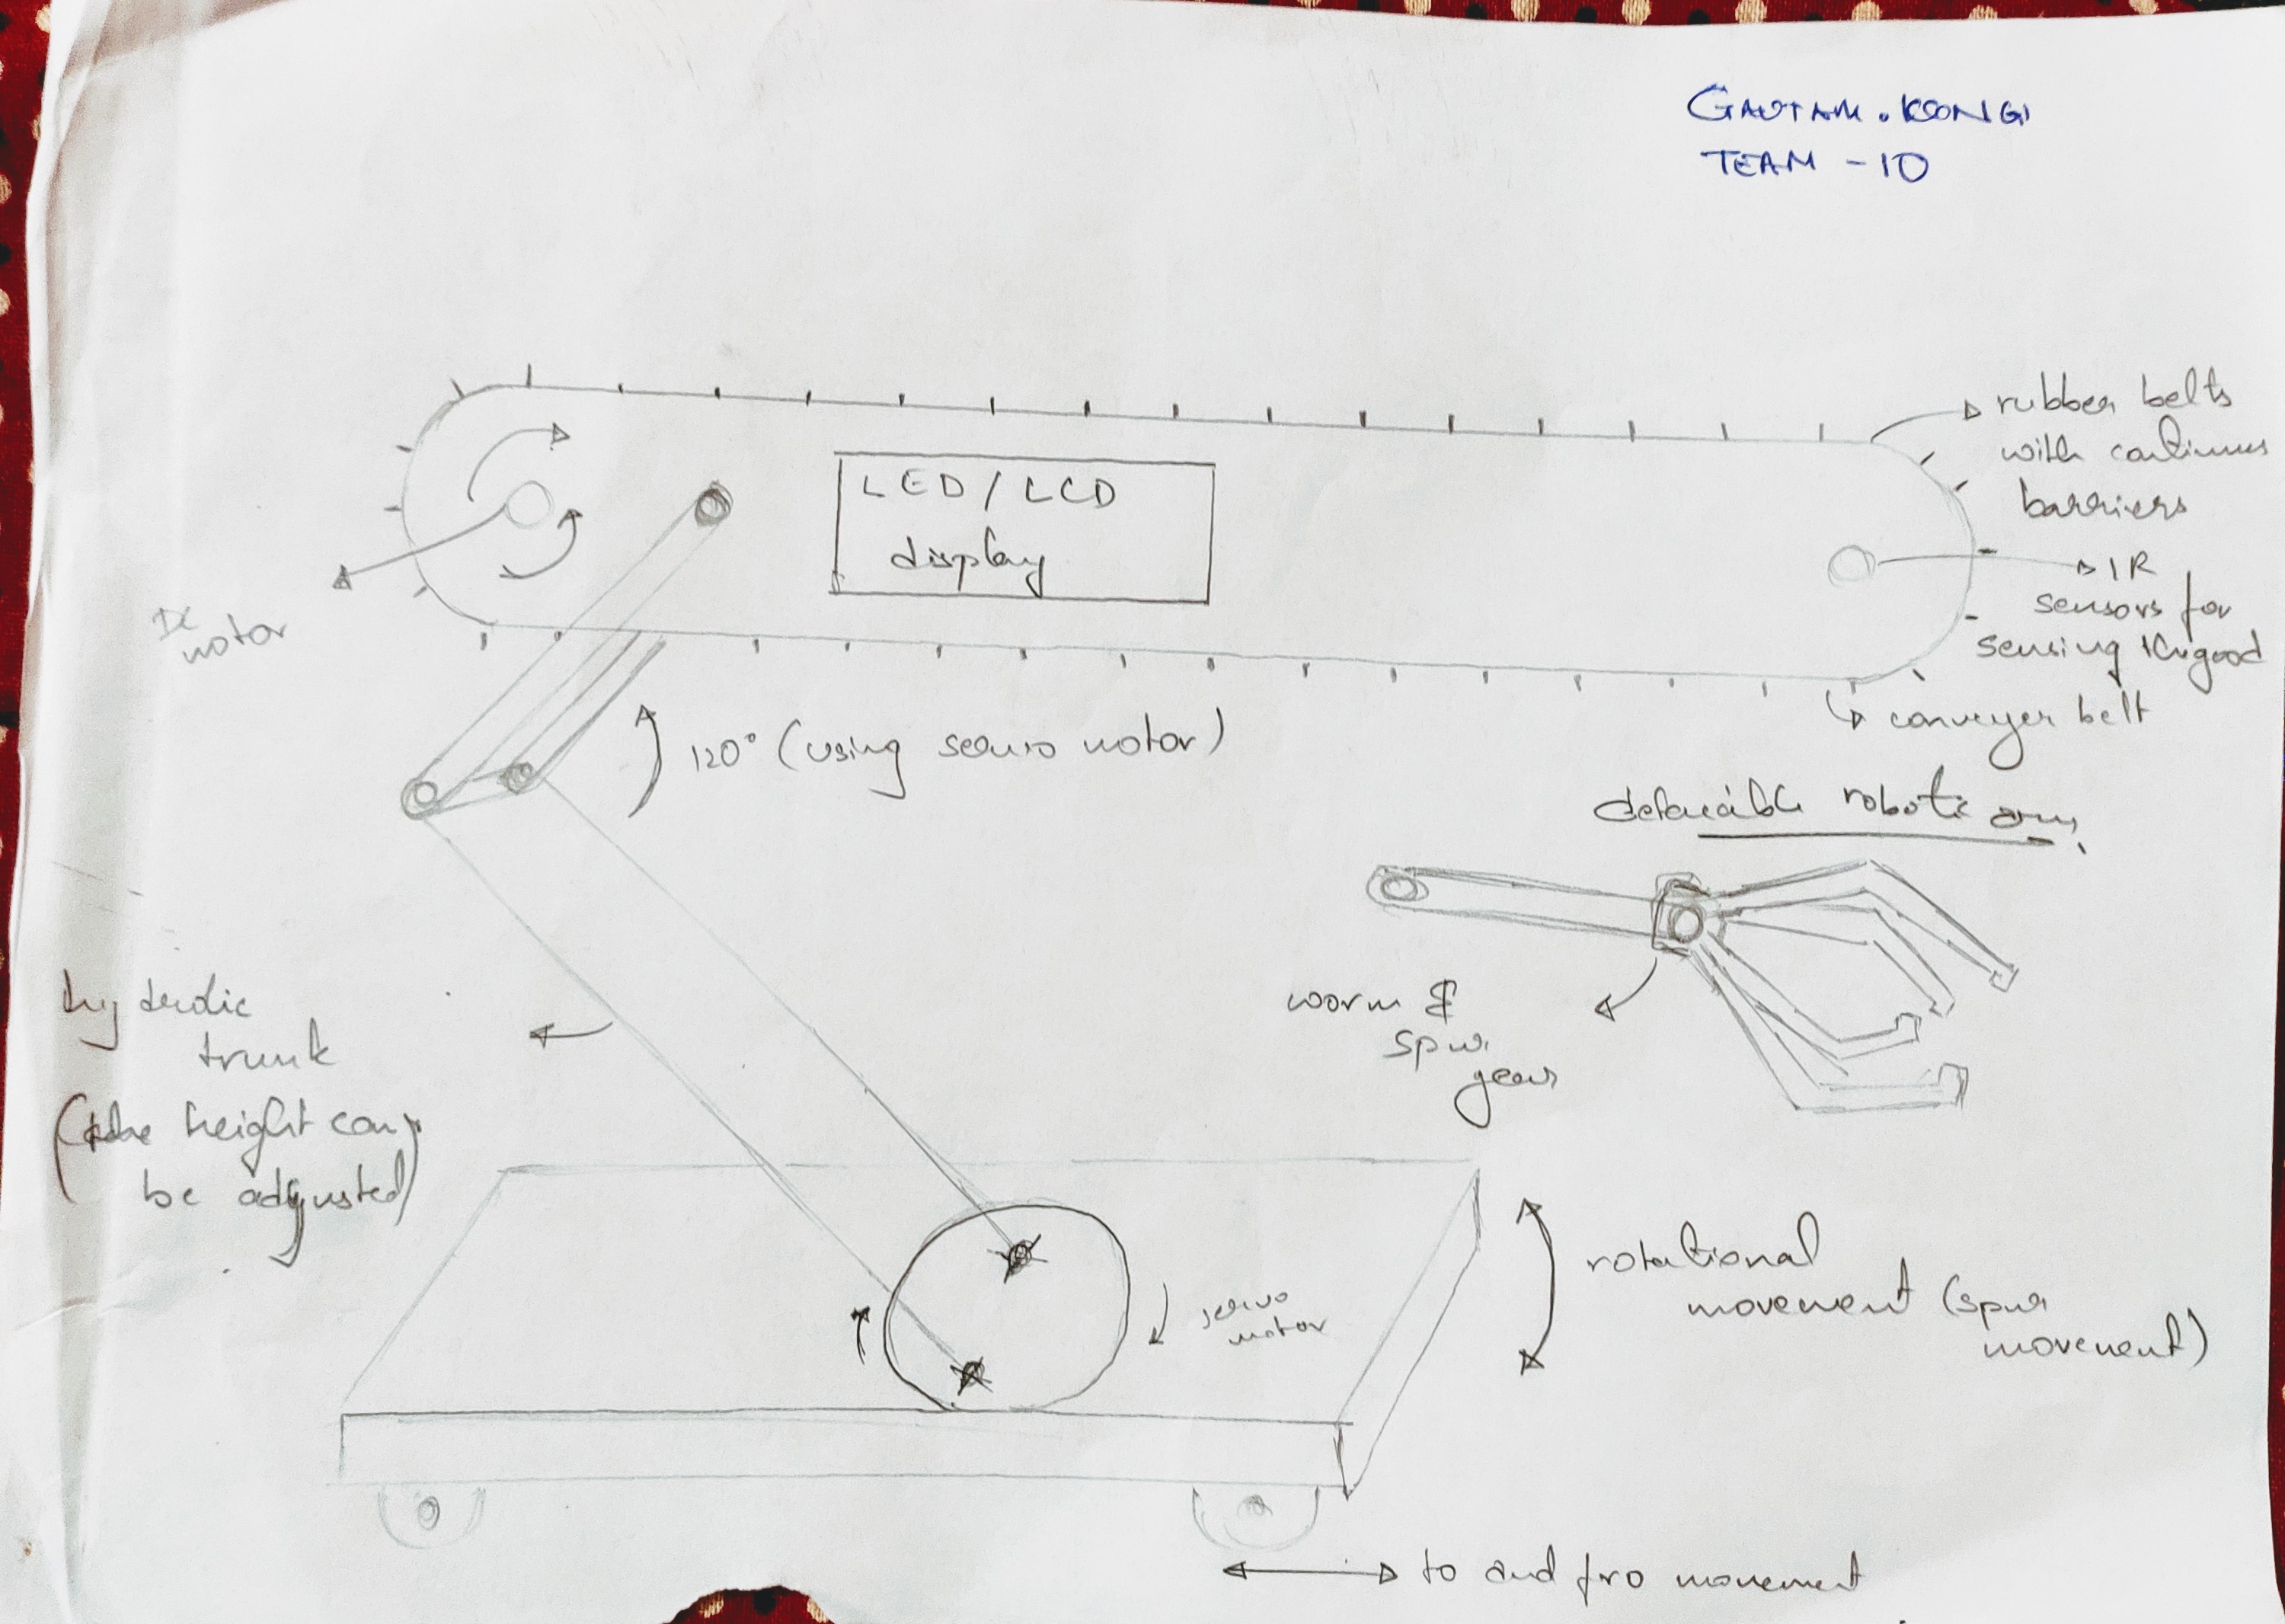 GAUTAM. KONGI
TEAM - 10
rubber belts
with continuous
barriers
LED / LCD
display
IR
sensors for
sensing the good
DC
motor
conveyer belt
120° (using servo motor)
detachable robotic arm
hydrolic
trunk
(the height can
be adjusted)
worm &
spur
gear
servo
motor
rotational
movement (spur
movement)
to and fro movement